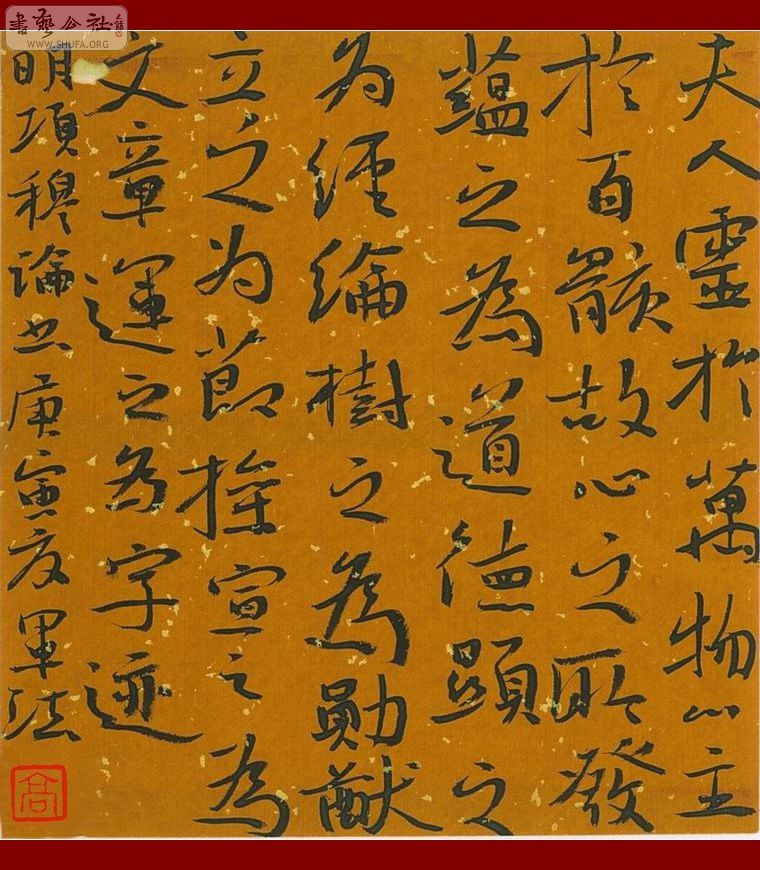 夫人靈於萬物心主
於百骸故心之所發
蘊之為道德顯之
為經綸樹之為勛猷
立之為節操宣之為
文章運之為字迹
明項穆論書庚寅友軍法
高
書藝公社
WWW.SHUFA.ORG